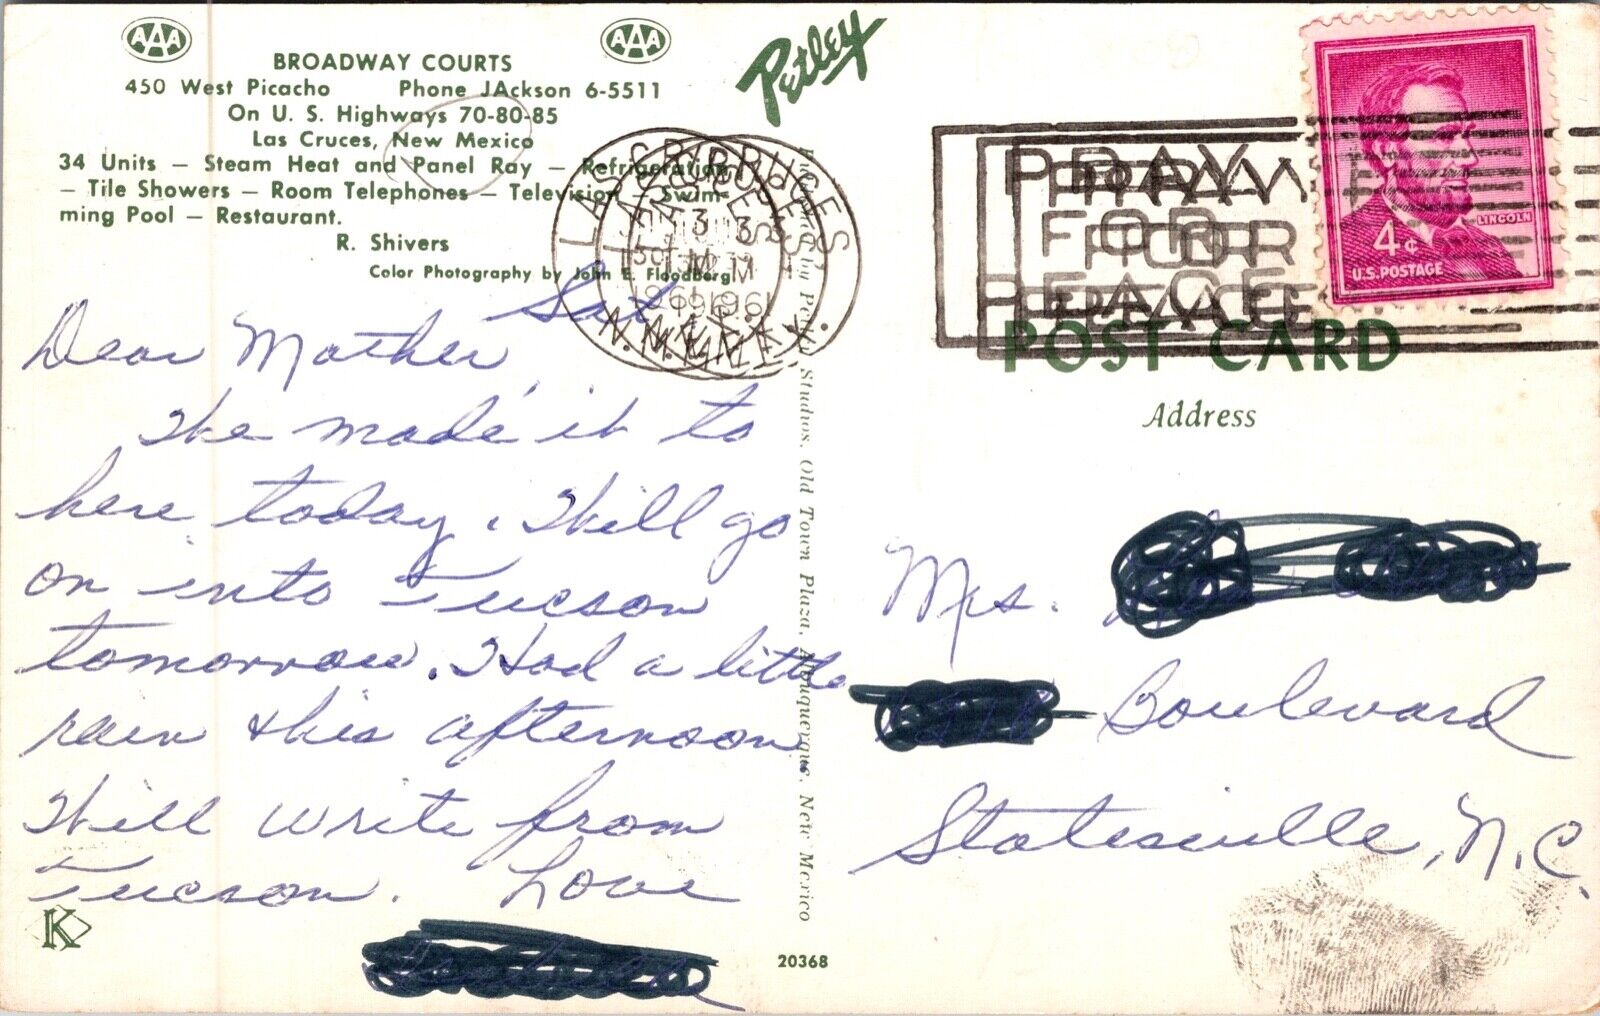 AAA
AAA
BROADWAY COURTS
450 West Picacho Phone JAckson 6-5511
On U. S. Highways 70-80-85
Las Cruces, New Mexico
34 Units — Steam Heat and Panel Ray — Refrigeration
— Tile Showers — Room Telephones — Television — Swim-
ming Pool — Restaurant.
R. Shivers
Color Photography by John E. Floodberg
Petley
LAS CRUCES
1961
N. MEX.
PRAY
FOR
PEACE
LINCOLN
4¢
U.S. POSTAGE
POST CARD
Address
Sat
Dear Mother,
We made it to
here today. Will go
on into Tucson
tomorrow. Had a little
rain this afternoon.
Will write from
Tucson. Love
by Petley Studios, Old Town Plaza, Albuquerque, New Mexico
Mrs.
Boulevard
Statesville, N.C.
K
20368